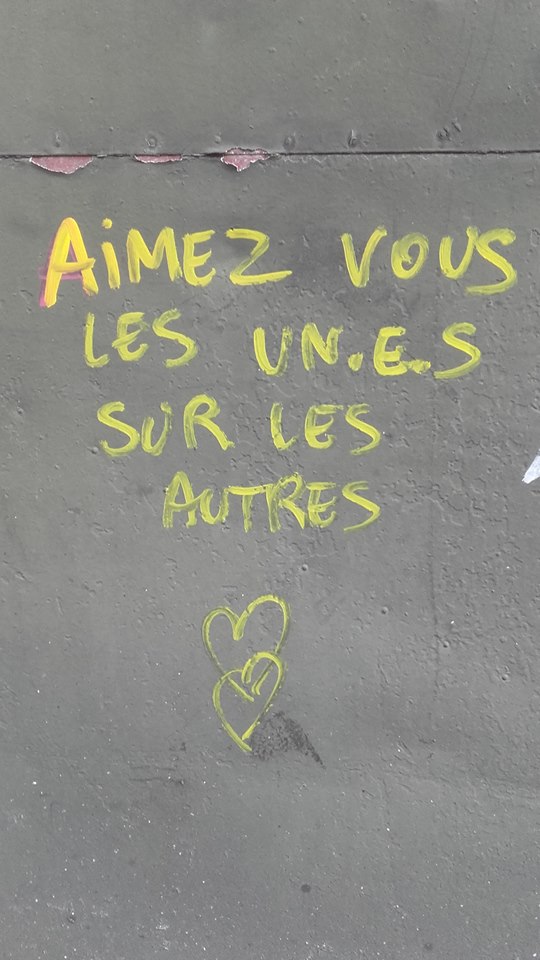 AiMEZ VOUS
LES UN.E.S
SUR LES
AUTRES